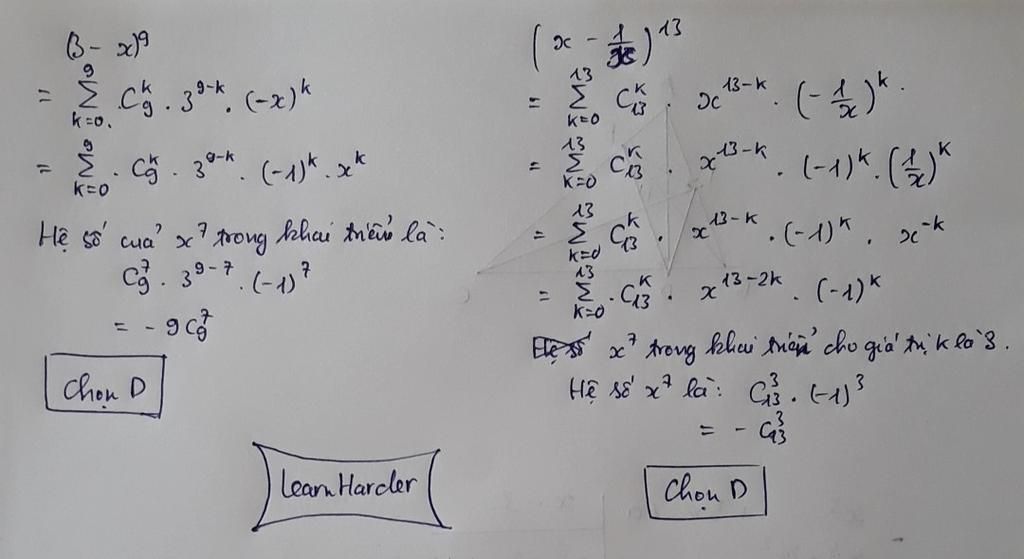 (3 - x)^9
= ∑_{k=0}^{9} C_9^k · 3^{9-k} · (-x)^k
= ∑_{k=0}^{9} · C_9^k · 3^{9-k} · (-1)^k · x^k
Hệ số của x^7 trong khai triển là:
C_9^7 · 3^{9-7} · (-1)^7
= - 9C_9^7
Chọn D
(x - 1/x)^{13}
= ∑_{k=0}^{13} C_{13}^k · x^{13-k} · (-1/x)^k ·
= ∑_{k=0}^{13} C_{13}^k · x^{13-k} · (-1)^k · (1/x)^k
= ∑_{k=0}^{13} C_{13}^k · x^{13-k} · (-1)^k · x^{-k}
= ∑_{k=0}^{13} · C_{13}^k · x^{13-2k} · (-1)^k
x^7 trong khai triển cho giá trị k là 3.
Hệ số x^7 là: C_{13}^3 · (-1)^3
= - C_{13}^3
Chọn D
LearnHarder